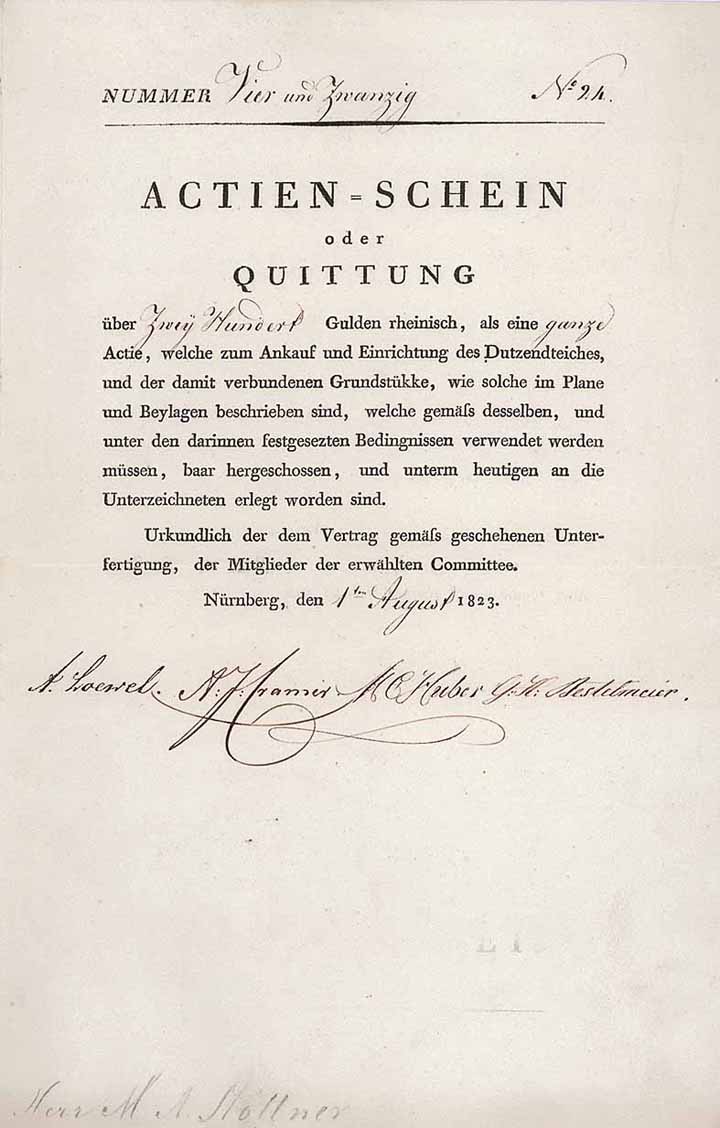 NUMMER Vier und Zwanzig No 24.
ACTIEN = SCHEIN
oder
QUITTUNG
über Zweÿ Hundert Gulden rheinisch, als eine ganze
Actie, welche zum Ankauf und Einrichtung des Dutzendteiches,
und der damit verbundenen Grundstükke, wie solche im Plane
und Beylagen beschrieben sind, welche gemäſs desselben, und
unter den darinnen festgesezten Bedingnissen verwendet werden
müssen, baar hergeschossen, und unterm heutigen an die
Unterzeichneten erlegt worden sind.
Urkundlich der dem Vertrag gemäſs geschehenen Unter-
fertigung, der Mitglieder der erwählten Committee.
Nürnberg, den 1ten August 1823.
A. Loewel. A. J. Cramer Huber G. H. Bestelmeier.
Herr M A Höllner